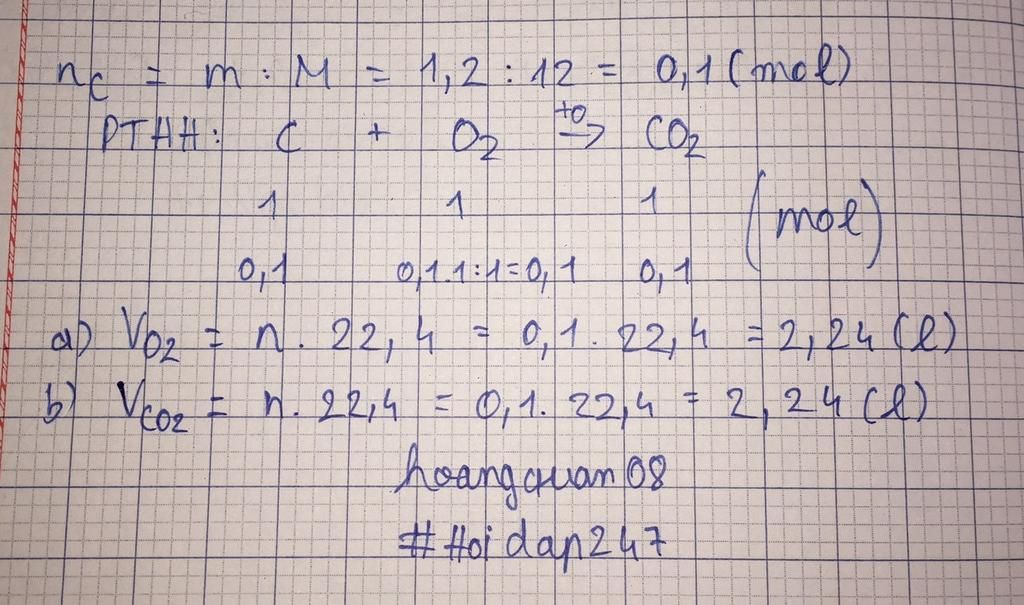 nC = m : M = 1,2 : 12 = 0,1 (mol)
PTHH: C + O2 →(+0) CO2
1 1 1 (mol)
0,1 0,1.1:1=0,1 0,1
a) VO2 = n. 22,4 = 0,1. 22,4 = 2,24 (l)
b) VCO2 = n. 22,4 = 0,1. 22,4 = 2,24 (l)
hoangquan08
#Hoidap247